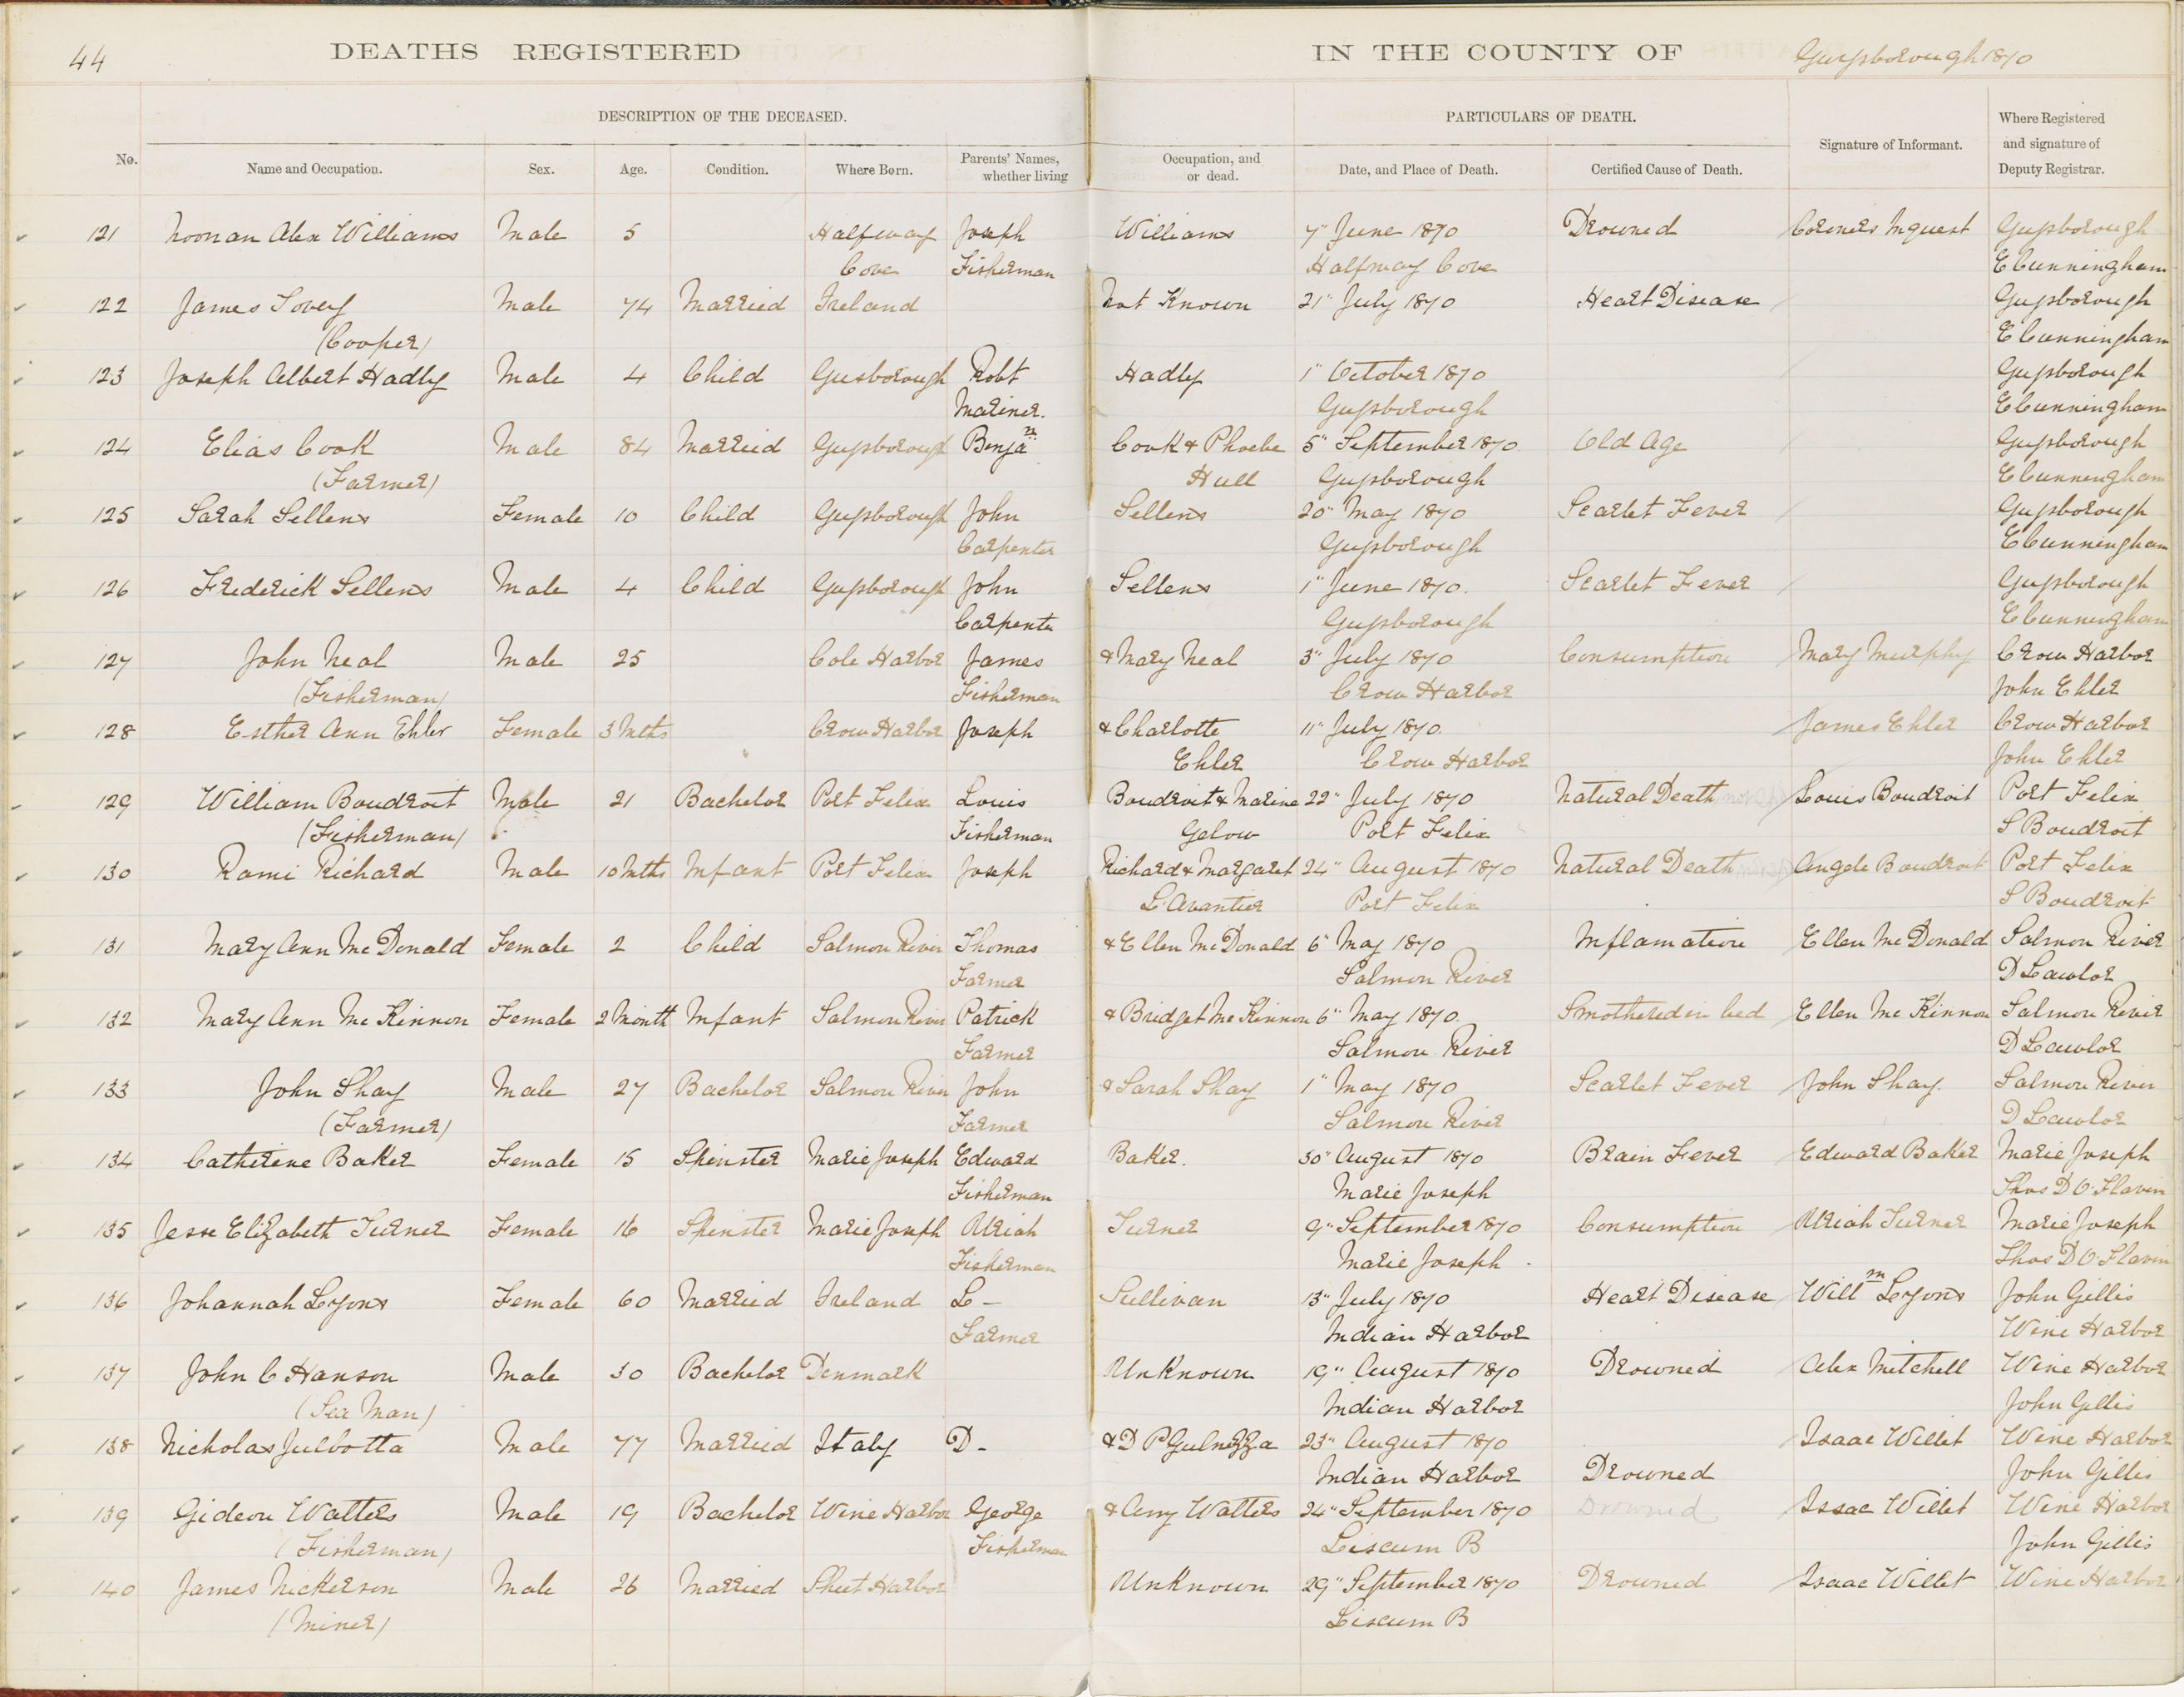 44 DEATHS REGISTERED IN THE COUNTY OF Guysborough 1870
DESCRIPTION OF THE DECEASED. PARTICULARS OF DEATH. Where Registered
No. Name and Occupation. Sex. Age. Condition. Where Born. Parents' Names, Occupation, and Date, and Place of Death. Certified Cause of Death. Signature of Informant. and signature of
whether living or dead. Deputy Registrar.
121 Noonan Alex Williams Male 5 Halfway Joseph Williams 7" June 1870 Drowned Coroners Inquest Guysborough
Cove Fisherman Halfway Cove E Cunningham
122 James Tovey Male 74 Married Ireland Not Known 21" July 1870 Heart Disease Guysborough
(Cooper) E Cunningham
123 Joseph Albert Hadly Male 4 Child Gusborough Robt Hadly 1" October 1870 Guysborough
Mariner. Guysborough E Cunningham
124 Elias Cook Male 84 Married Guysborough Benja n Cook & Phoebe 5" September 1870 Old Age Guysborough
(Farmer) Hull Guysborough E Cunningham
125 Sarah Sellens Female 10 Child Guysborough John Sellens 20" May 1870 Scarlet Fever Guysborough
Carpenter Guysborough E Cunningham
126 Frederick Sellens Male 4 Child Guysborough John Sellens 1" June 1870. Scarlet Fever Guysborough
Carpenter Guysborough E Cunningham
127 John Neal Male 25 Cole Harbor James & Mary Neal 3" July 1870 Consumption Mary Murphy Crow Harbor
(Fisherman) Fisherman Crow Harbor John Ehler
128 Esther Ann Ehler Female 3 Mths Crow Harbor Joseph & Charlotte 11" July 1870. James Ehler Crow Harbor
Ehler Crow Harbor John Ehler
129 William Boudroit Male 21 Bachelor Port Felix Louis Boudroit & Marine 22" July 1870 Natural Death Louis Boudroit Port Felix
(Fisherman) Fisherman Gelow Port Felix S Boudroit
130 Rami Richard Male 10 Mths Infant Port Felix Joseph Richard & Margaret 24" August 1870 Natural Death Angele Boudroit Port Felix
L'Avantier Port Felix S Boudroit
131 Mary Ann McDonald Female 2 Child Salmon River Thomas & Ellen McDonald 6" May 1870 Inflamation Ellen McDonald Salmon River
Farmer Salmon River D Lawlor
132 Mary Ann McKinnon Female 2 Month Infant Salmon River Patrick & Bridget McKinnon 6" May 1870. Smothered in bed Ellen McKinnon Salmon River
Farmer Salmon River D Lawlor
133 John Shay Male 27 Bachelor Salmon River John & Sarah Shay 1" May 1870 Scarlet Fever John Shay. Salmon River
(Farmer) Farmer Salmon River D Lawlor
134 Catherine Baker Female 15 Spinster Marie Joseph Edward Baker. 30" August 1870 Brain Fever Edward Baker Marie Joseph
Fisherman Marie Joseph Thos D O'Flavin
135 Jesse Elizabeth Turner Female 16 Spinster Marie Joseph Uriah Turner 9" September 1870 Consumption Uriah Turner Marie Joseph
Fisherman Marie Joseph Thos D O'Flavin
136 Johannah Lyons Female 60 Married Ireland L - Sullivan 13" July 1870 Heart Disease Will m Lyons John Gillis
Farmer Indian Harbor Wine Harbor
137 John C Hanson Male 30 Bachelor Denmark Unknown 19" August 1870 Drowned Alex Mitchell Wine Harbor
(Sea Man) Indian Harbor John Gillis
138 Nicholas Julbotta Male 77 Married Italy D - & D P Gulnezza 23" August 1870 Isaac Willet Wine Harbor
Indian Harbor Drowned John Gillis
139 Gideon Watters Male 19 Bachelor Wine Harbor George & Amy Watters 24" September 1870 Drowned Issac Willet Wine Harbor
(Fisherman) Fisherman Liscum B John Gillis
140 James Nickerson Male 26 Married Sheet Harbor Unknown 29" September 1870 Drowned Isaac Willet Wine Harbor
(Miner) Liscum B